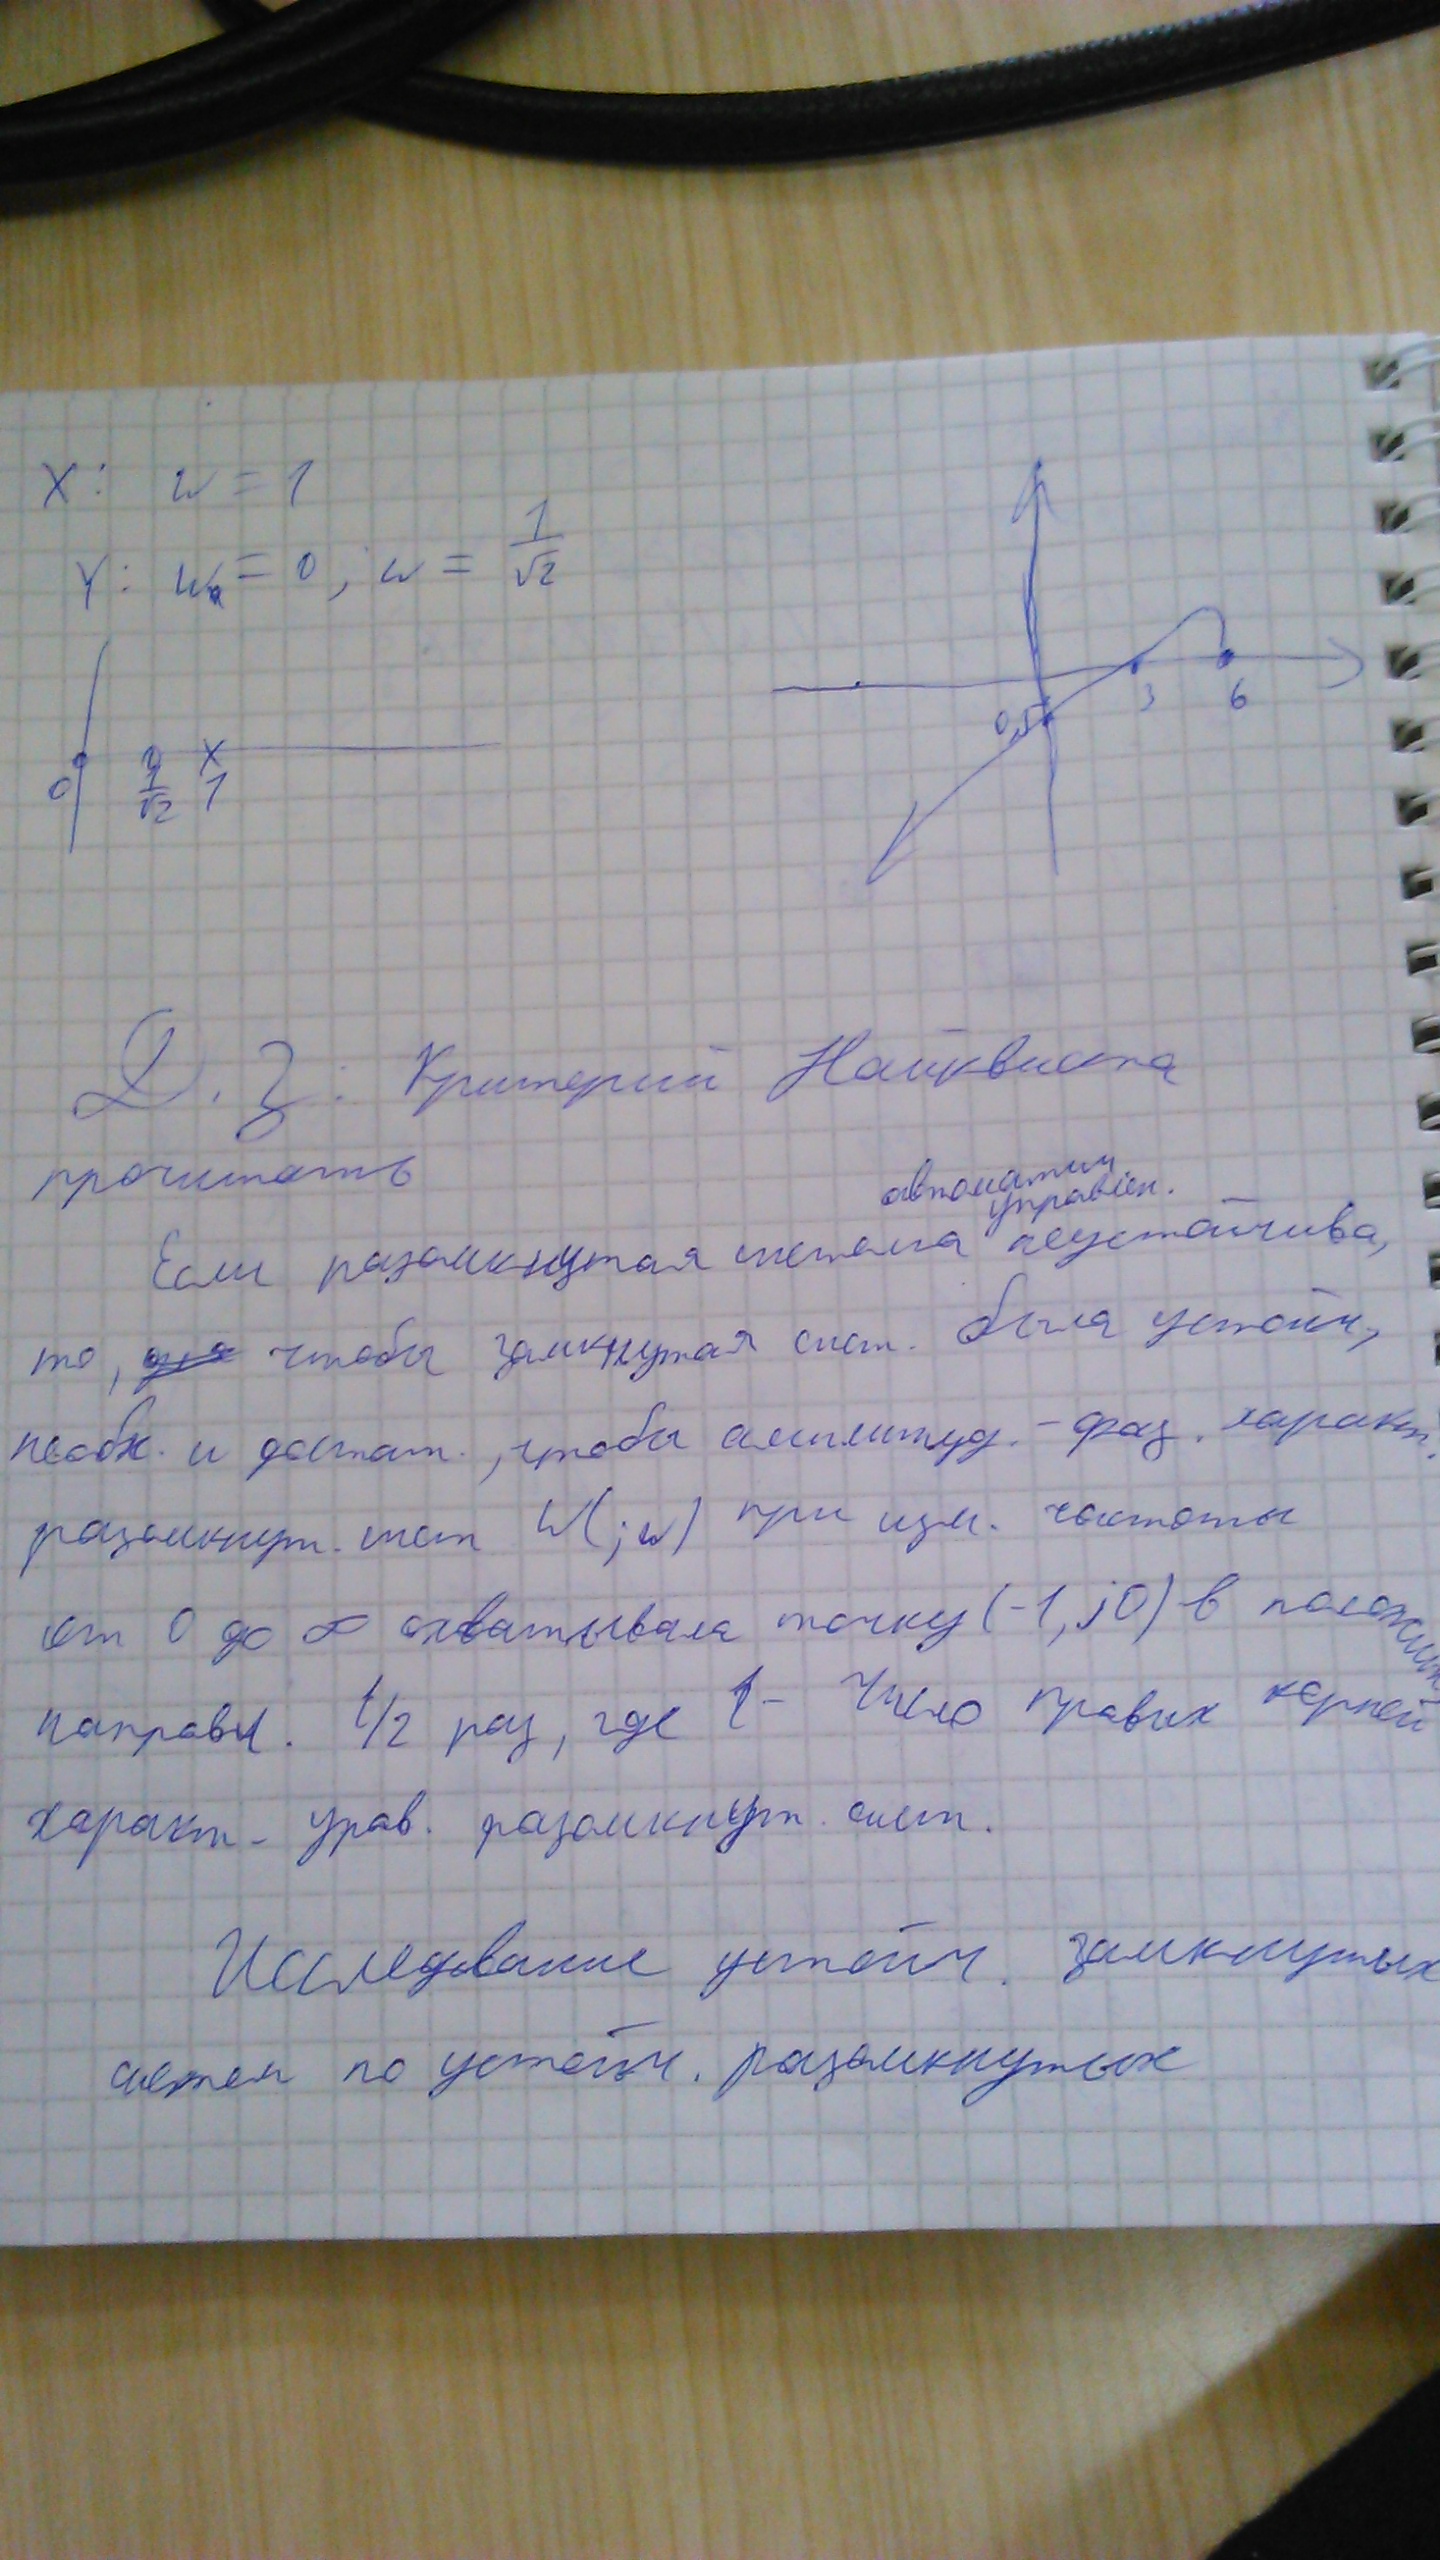 X: w = 1
Y: w = 0; w = 1/√2
0 1/√2 1
X
0,5 3 6
Д.З: Критерий Найквиста
прочитать
автоматич управлен.
Если разомкнутая система неустойчива,
то, чтобы замкнутая сист. была устойч,
необх. и достат., чтобы амплитуд.-фаз. характ.
разомкнут. сист W(jw) при изм. частоты
от 0 до ∞ охватывала точку (-1, j0) в положит
направл. l/2 раз, где l - число правых корней
характ- урав. разомкнут. сист.
Исследование устойч. замкнутых
систем по устойч. разомкнутых